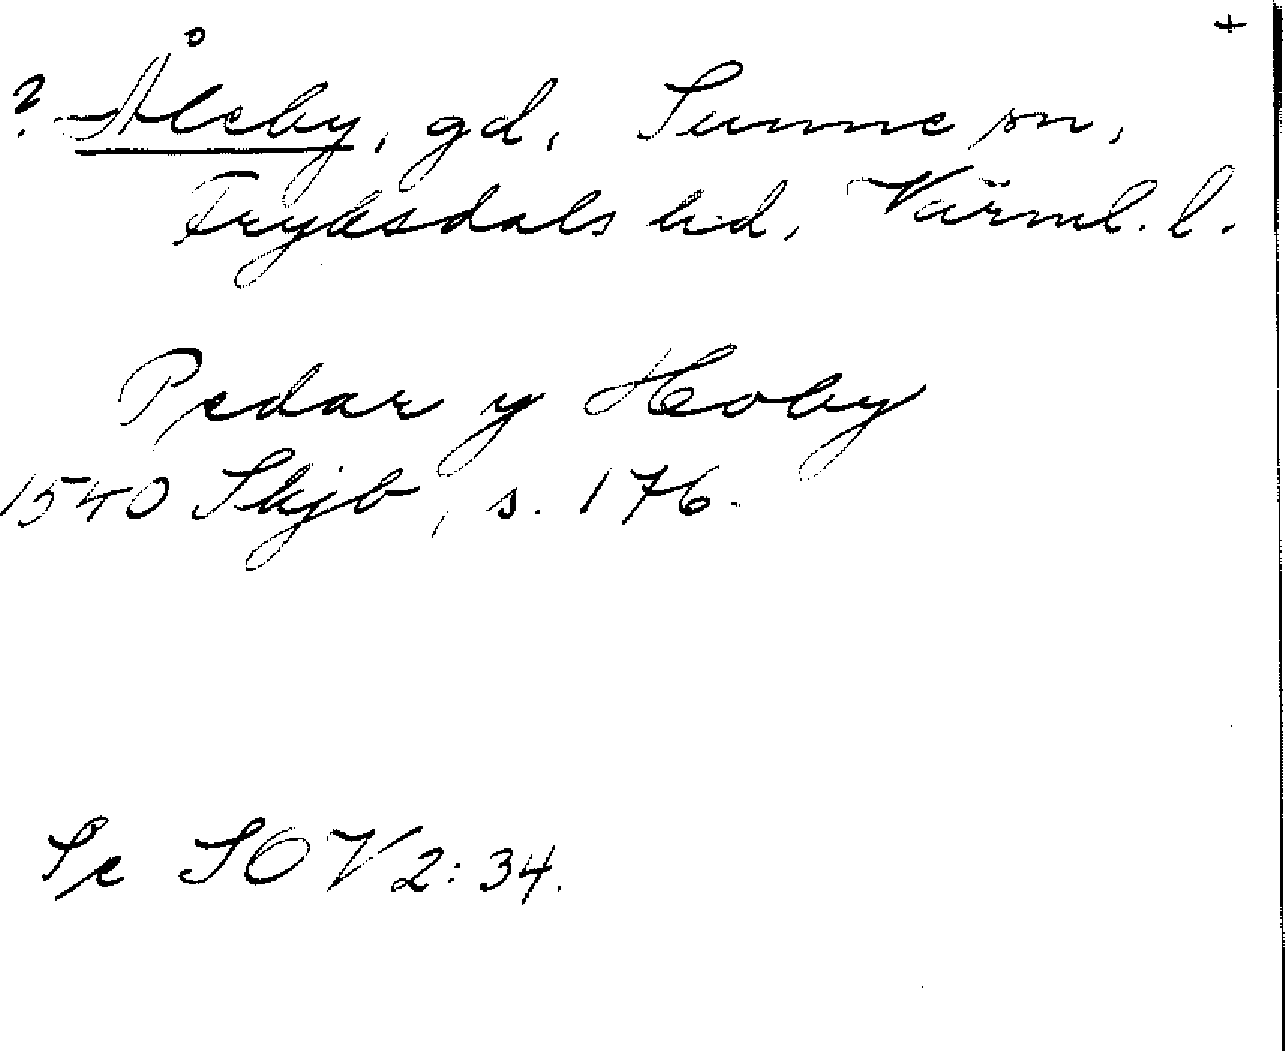 +
? Ålsby, gd, Sunne sn,
Fryksdals hd, Värml. l.
Pedar y Hoby
1540 Skjb, s. 176.
Se SOV 2:34.